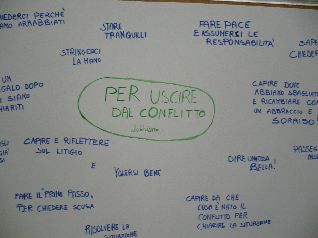 CHIEDERCI PERCHÈ
SIAMO ARRABBIATI
STARE
TRANQUILLI
FARE PACE
E ASSUMERCI LE
RESPONSABILITÀ
STRINGERCI
LA MANO
CHIEDER
UN
REGALO DOPO
CI SIAMO
CHIARITI
PER USCIRE
DAL CONFLITTO
CAPIRE DOVE
ABBIAMO SBAGLIATO
E RICAMBIARE CON
UN ABBRACCIO E
SORRISO
CAPIRE E RIFLETTERE
SUL LITIGIO
E
VOLERSI BENE
DIRE UNA COSA
BELLA!
FARE IL PRIMO PASSO,
PER CHIEDERE SCUSA
CAPIRE DA CHE
COSA È NATO IL
CONFLITTO PER
CHIARIRE LA SITUAZIONE
RISOLVERE LA
SITUAZIONE